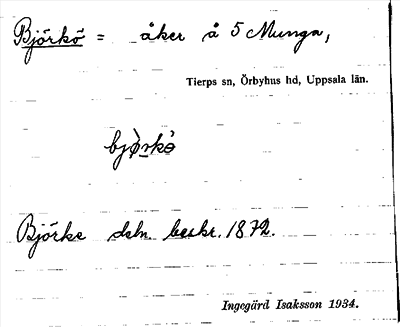 Björkö = åker å 5 Munga,
Tierps sn, Örbyhus hd, Uppsala län.
bjørkò
Björke dsbn. beskr. 1872.
Ingegärd Isaksson 1934.